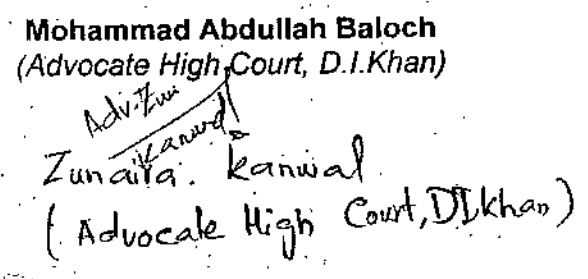 Mohammad Abdullah Baloch
(Advocate High Court, D.I.Khan)
Adv. Zun
Kanwal
Zunaira. Kanwal
(Advocate High Court, DIkhan)